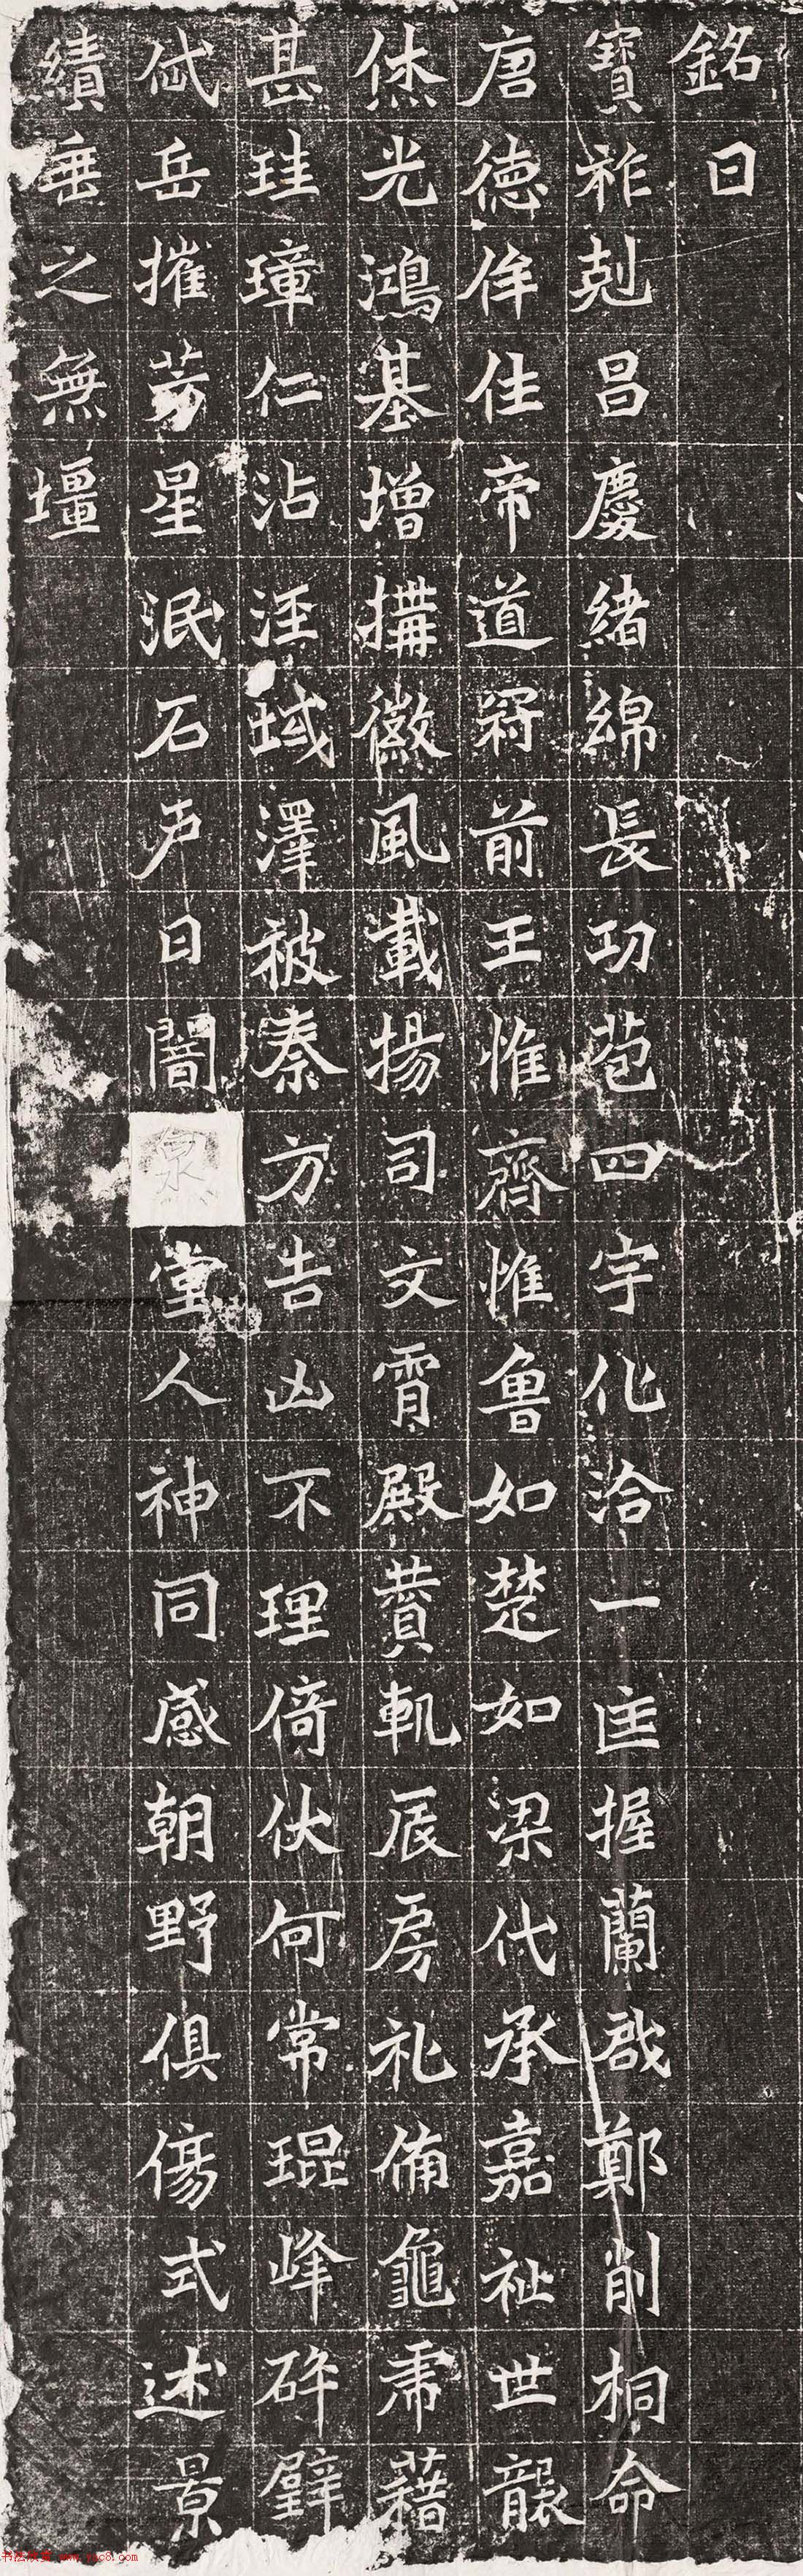 銘曰
寶祚剋昌慶緒綿長功苞四宇化洽一匡握蘭啟鄭削桐命
唐德侔往帝道冠前王惟齊惟魯如楚如梁代承嘉祉世襲
休光鴻基增搆徽風載揚司文霄殿贊軌辰房礼俻龜虎藉
甚珪璋仁沾涇域澤被秦方吉凶不理倚伏何常琨峰碎璧
岱岳摧芳星泯石户日闇泉堂人神同感朝野俱傷式述景
績垂之無壃
www.yac8.com